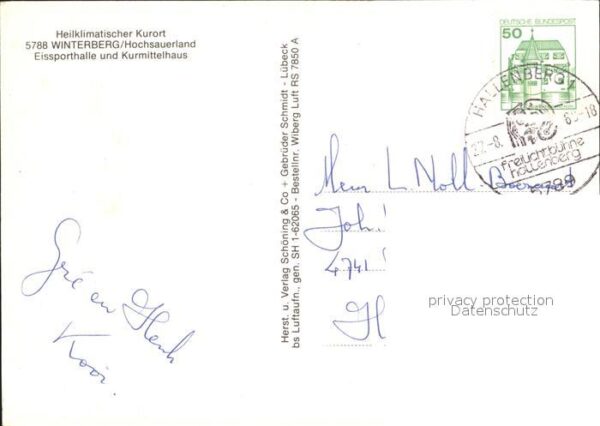 Heilklimatischer Kurort
5788 WINTERBERG/Hochsauerland
Eissporthalle und Kurmittelhaus
Herst. u. Verlag Schöning & Co + Gebrüder Schmidt - Lübeck
bs Luftaufn., gen. SH 1-62065 - Bestellnr. Wiberg Luft RS 7850 A
DEUTSCHE BUNDESPOST
50
HALLENBERG 1
-8.
-18
Freilichtbühne
Hallenberg
5789
L. Noll
Joh.
4741
H
privacy protection
Datenschutz
en Henk